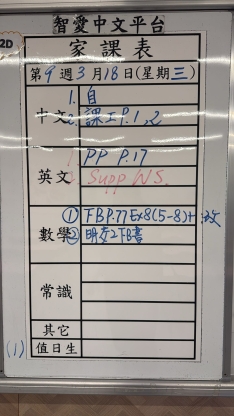 智愛中文平台
2D
家課表
第9週3月18日(星期三)
中文
1. 自
2. 課工P.1,2
英文
1. PP P.17
2. Supp WS.
數學
① FBP.77Ex8(5-8)+改
② 明交2下B書
常識
其它
(1) 值日生